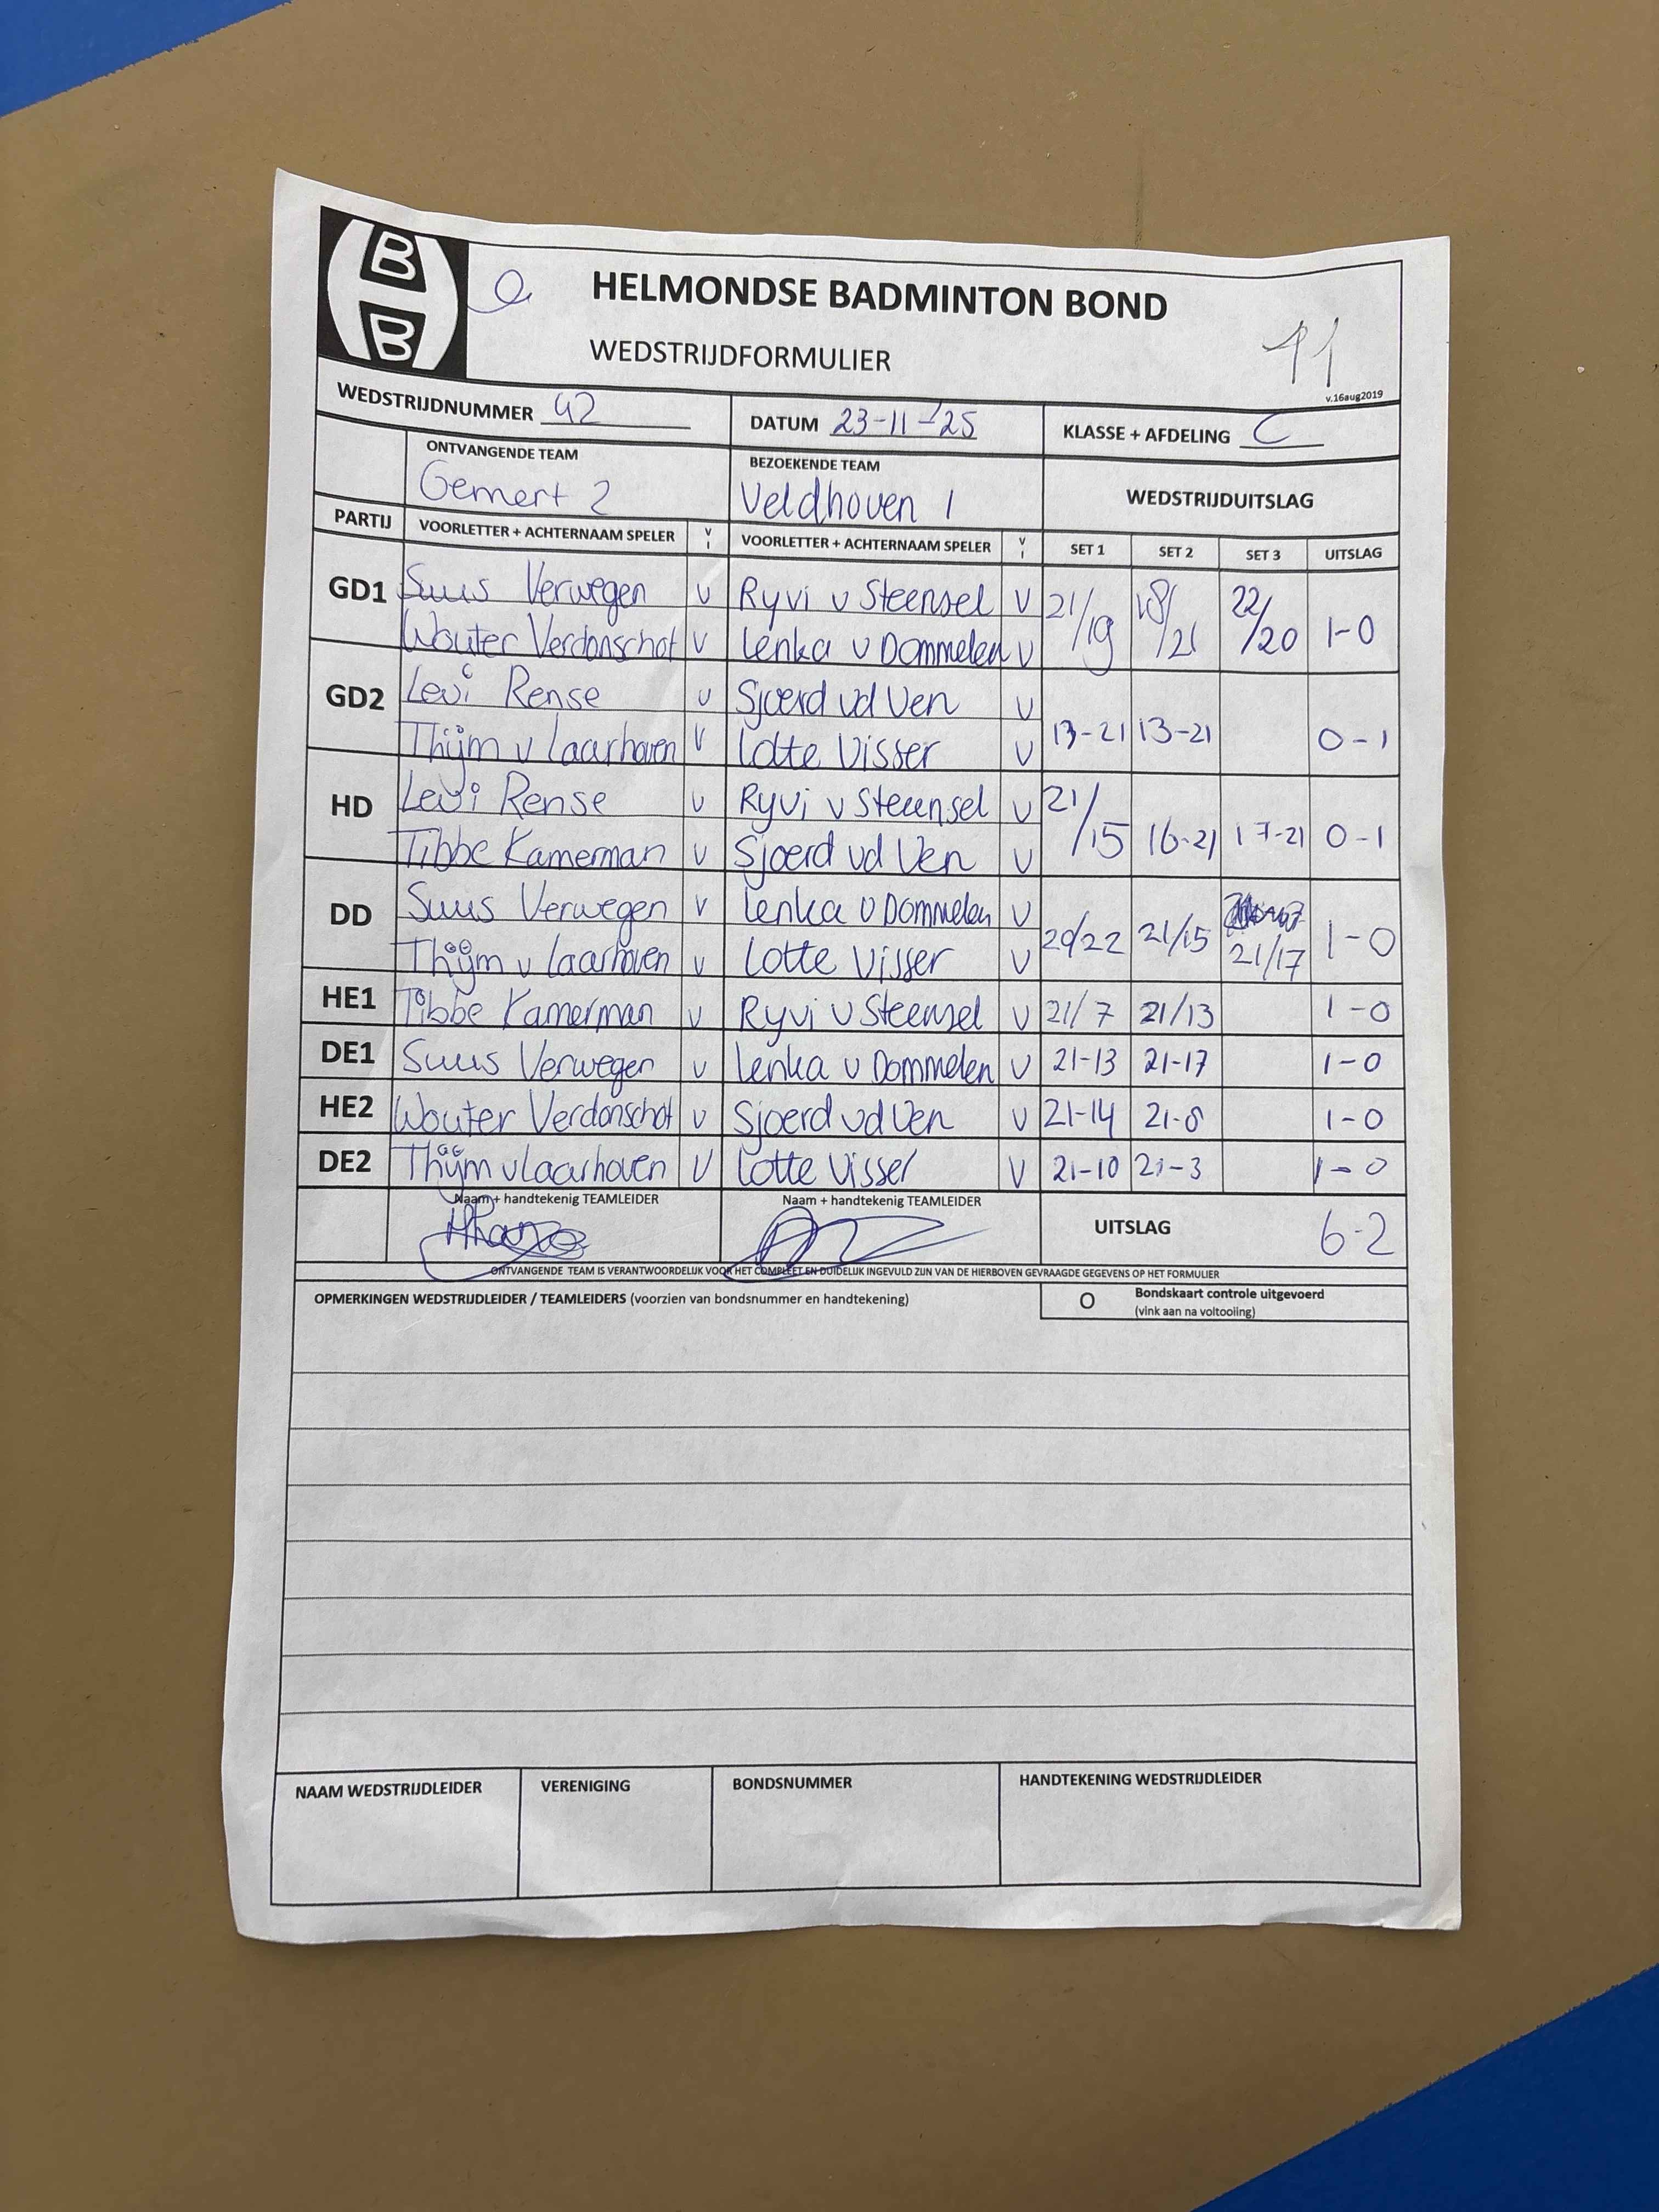 B
B
HELMONDSE BADMINTON BOND
WEDSTRIJDFORMULIER
11
v.16aug2019
WEDSTRIJDNUMMER 42 DATUM 23-11-'25 KLASSE + AFDELING C
ONTVANGENDE TEAM BEZOEKENDE TEAM
Gemert 2 Veldhoven 1 WEDSTRIJDUITSLAG
PARTIJ VOORLETTER + ACHTERNAAM SPELER V I VOORLETTER + ACHTERNAAM SPELER V I SET 1 SET 2 SET 3 UITSLAG
GD1 Suus Verwegen v Ryvi v Steensel v 21/19 18/21 22/20 1-0
Wouter Verdonschot v Lenka v Dommelen v
GD2 Levi Rense v Sjoerd vd Ven v
Thijm v Laarhoven v Lotte Visser v 13-21 13-21 0-1
HD Levi Rense v Ryvi v Steensel v 21/15 16-21 17-21 0-1
Tibbe Kamerman v Sjoerd vd Ven v
DD Suus Verwegen v Lenka v Dommelen v 20/22 21/15 21/17 1-0
Thijm v Laarhoven v Lotte Visser v
HE1 Tibbe Kamerman v Ryvi v Steensel v 21/7 21/13 1-0
DE1 Suus Verwegen v Lenka v Dommelen v 21-13 21-17 1-0
HE2 Wouter Verdonschot v Sjoerd vd Ven v 21-14 21-8 1-0
DE2 Thijm v Laarhoven v Lotte Visser v 21-10 21-3 1-0
Naam + handtekenig TEAMLEIDER Naam + handtekenig TEAMLEIDER
UITSLAG 6-2
ONTVANGENDE TEAM IS VERANTWOORDELIJK VOOR HET COMPLEET EN DUIDELIJK INGEVULD ZIJN VAN DE HIERBOVEN GEVRAAGDE GEGEVENS OP HET FORMULIER
OPMERKINGEN WEDSTRIJDLEIDER / TEAMLEIDERS (voorzien van bondsnummer en handtekening) O Bondskaart controle uitgevoerd
(vink aan na voltooiing)
NAAM WEDSTRIJDLEIDER VERENIGING BONDSNUMMER HANDTEKENING WEDSTRIJDLEIDER